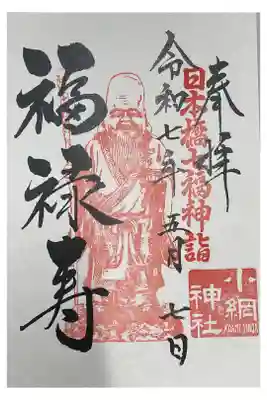 奉拝
日本橋七福神詣
令和七年 五月 七日
福禄寿
小網
神社
KOAMI JINJA